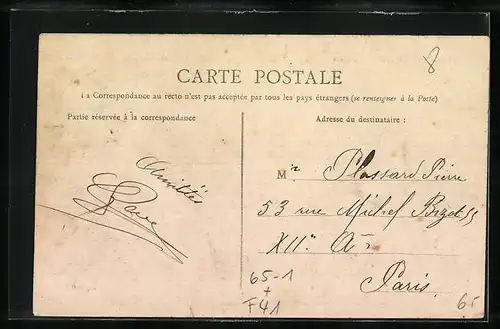 8
CARTE POSTALE
La Correspondance au recto n'est pas acceptée par tous les pays étrangers (se renseigner à la Poste)
Partie réservée à la correspondance
Adresse du destinataire :
Amitiés
Mr Plassard Pierre
53 rue Michel Bizot 55
XIIe Ar
Paris
65-1
+
F41